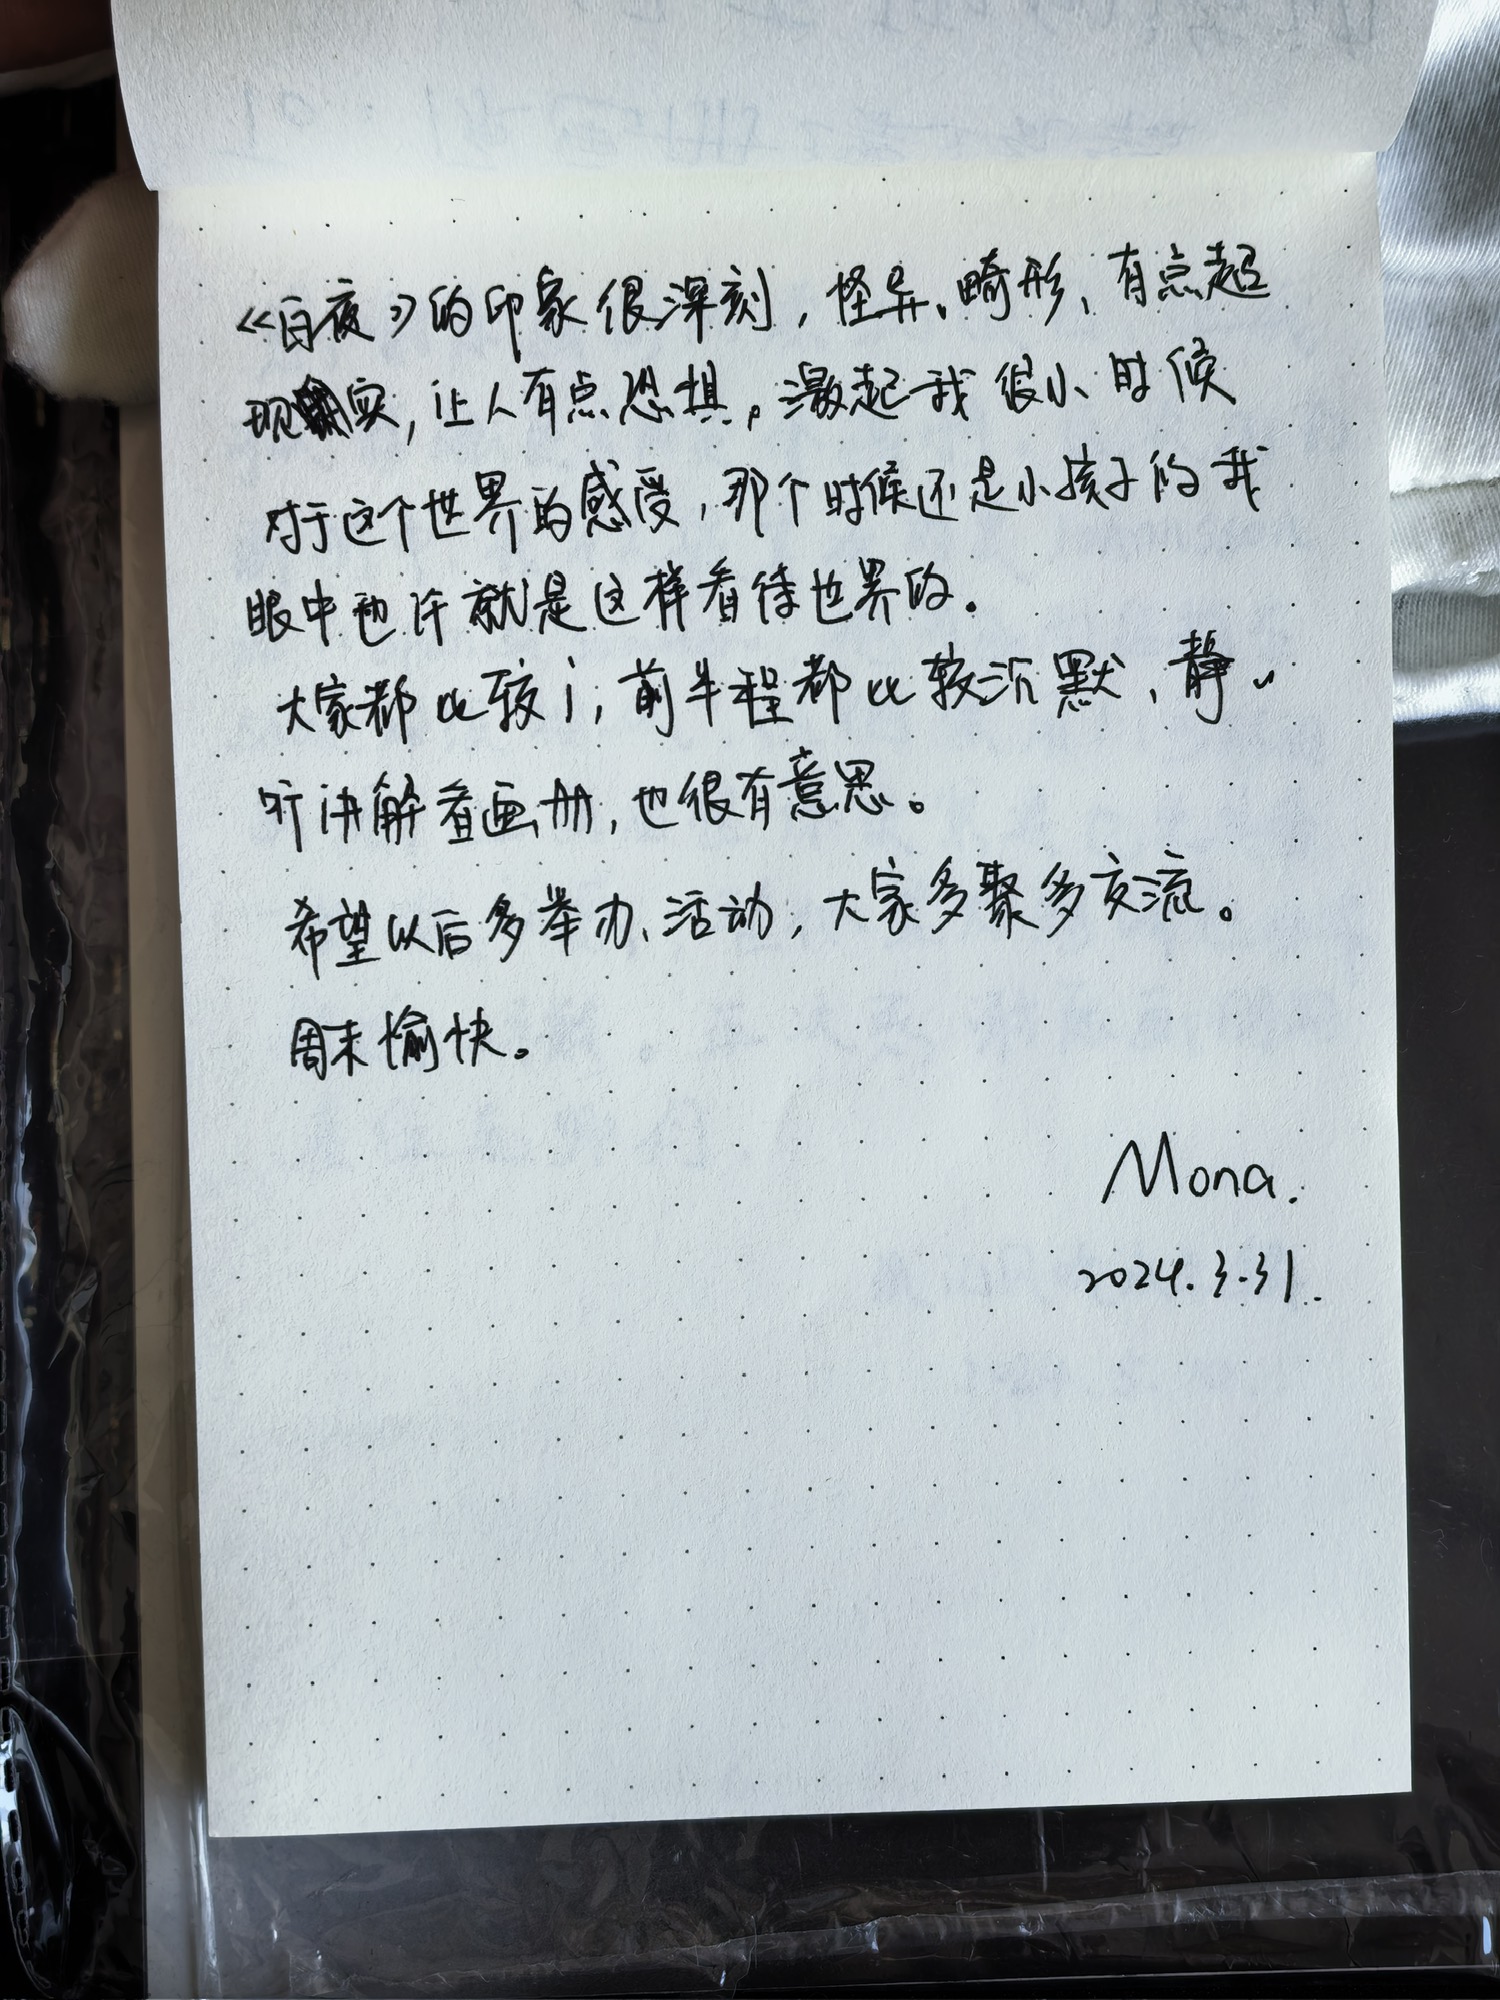 《白夜》的印象很深刻，怪异、畸形、有点超
现实，让人有点恐惧。激起我很小时候
对于这个世界的感受，那个时候还是小孩子的我
眼中也许就是这样看待世界的。
大家都比较i，前半程都比较沉默、静々
听讲解看画册，也很有意思。
希望以后多举办、活动，大家多聚多交流。
周末愉快。
Mona.
2024.3.31.